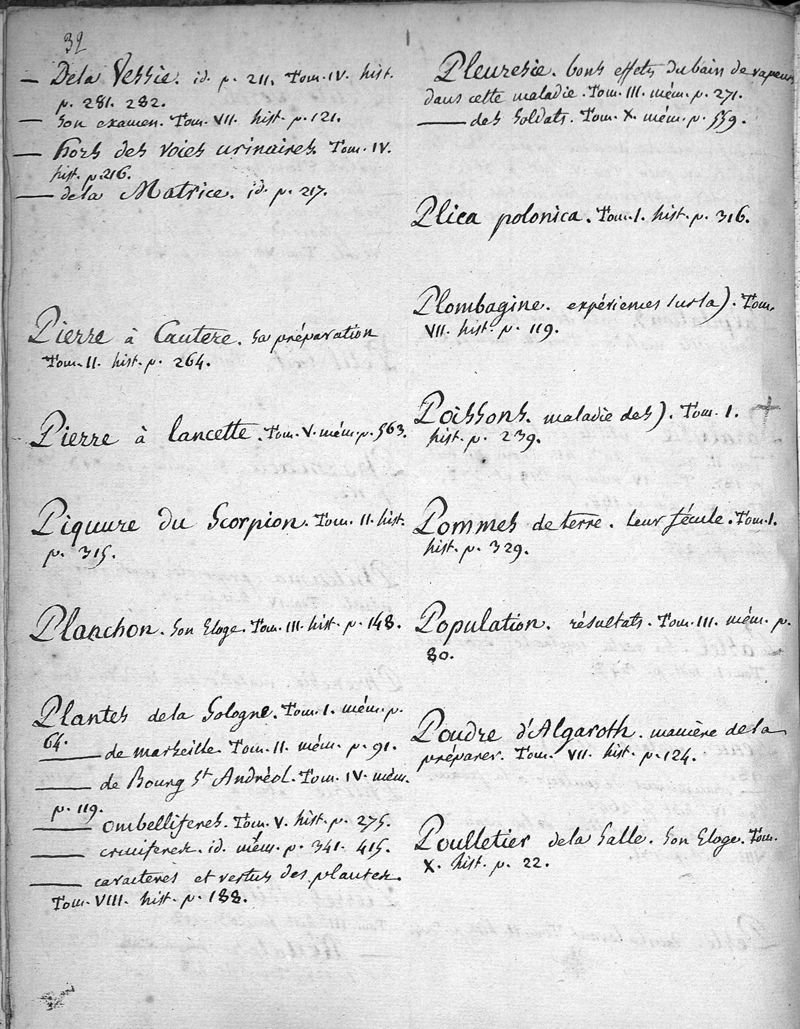 32
— Dela Vessie. id. p. 211. Tom. IV. hist.
p. 281. 282.
— Son examen. Tom. VII. hist. p. 121.
— Hors des voies urinaires. Tom. IV.
hist. p. 216.
— dela Matrice. id. p. 217.
Pierre à Cautere. Sa préparation
Tom. II. hist. p. 264.
Pierre à lancette. Tom. V. mém. p. 563.
Piquure du Scorpion. Tom. II. hist.
p. 315.
Planchon. Son Eloge. Tom. III. hist. p. 148.
Plantes dela Sologne. Tom. I. mém. p.
64.
— de marseille. Tom. II. mém. p. 91.
— de Bourg St Andréol. Tom. IV. mém.
p. 119.
— ombelliferes. Tom. V. hist. p. 275.
— cruciferes. id. mém. p. 341. 415.
— caracteres et vertus des plantes.
Tom. VIII. hist. p. 188.
Pleuresie. bons effets du bain de vapeurs
dans cette maladie. Tom. III. mém. p. 271.
— des Soldats. Tom. X. mém. p. 559.
Plica polonica. Tom. I. hist. p. 316.
Plombagine. expériences sur la). Tom.
VII. hist. p. 119.
Poissons. maladie des). Tom. I.
hist. p. 239.
Pommes de terre. leur fécule. Tom. I.
hist. p. 329.
Population. résultats. Tom. III. mém. p.
80.
Poudre d'Algaroth. maniére de la
préparer. Tom. VII. hist. p. 124.
Poulletier dela Salle. Son Eloge. Tom.
X. hist. p. 22.